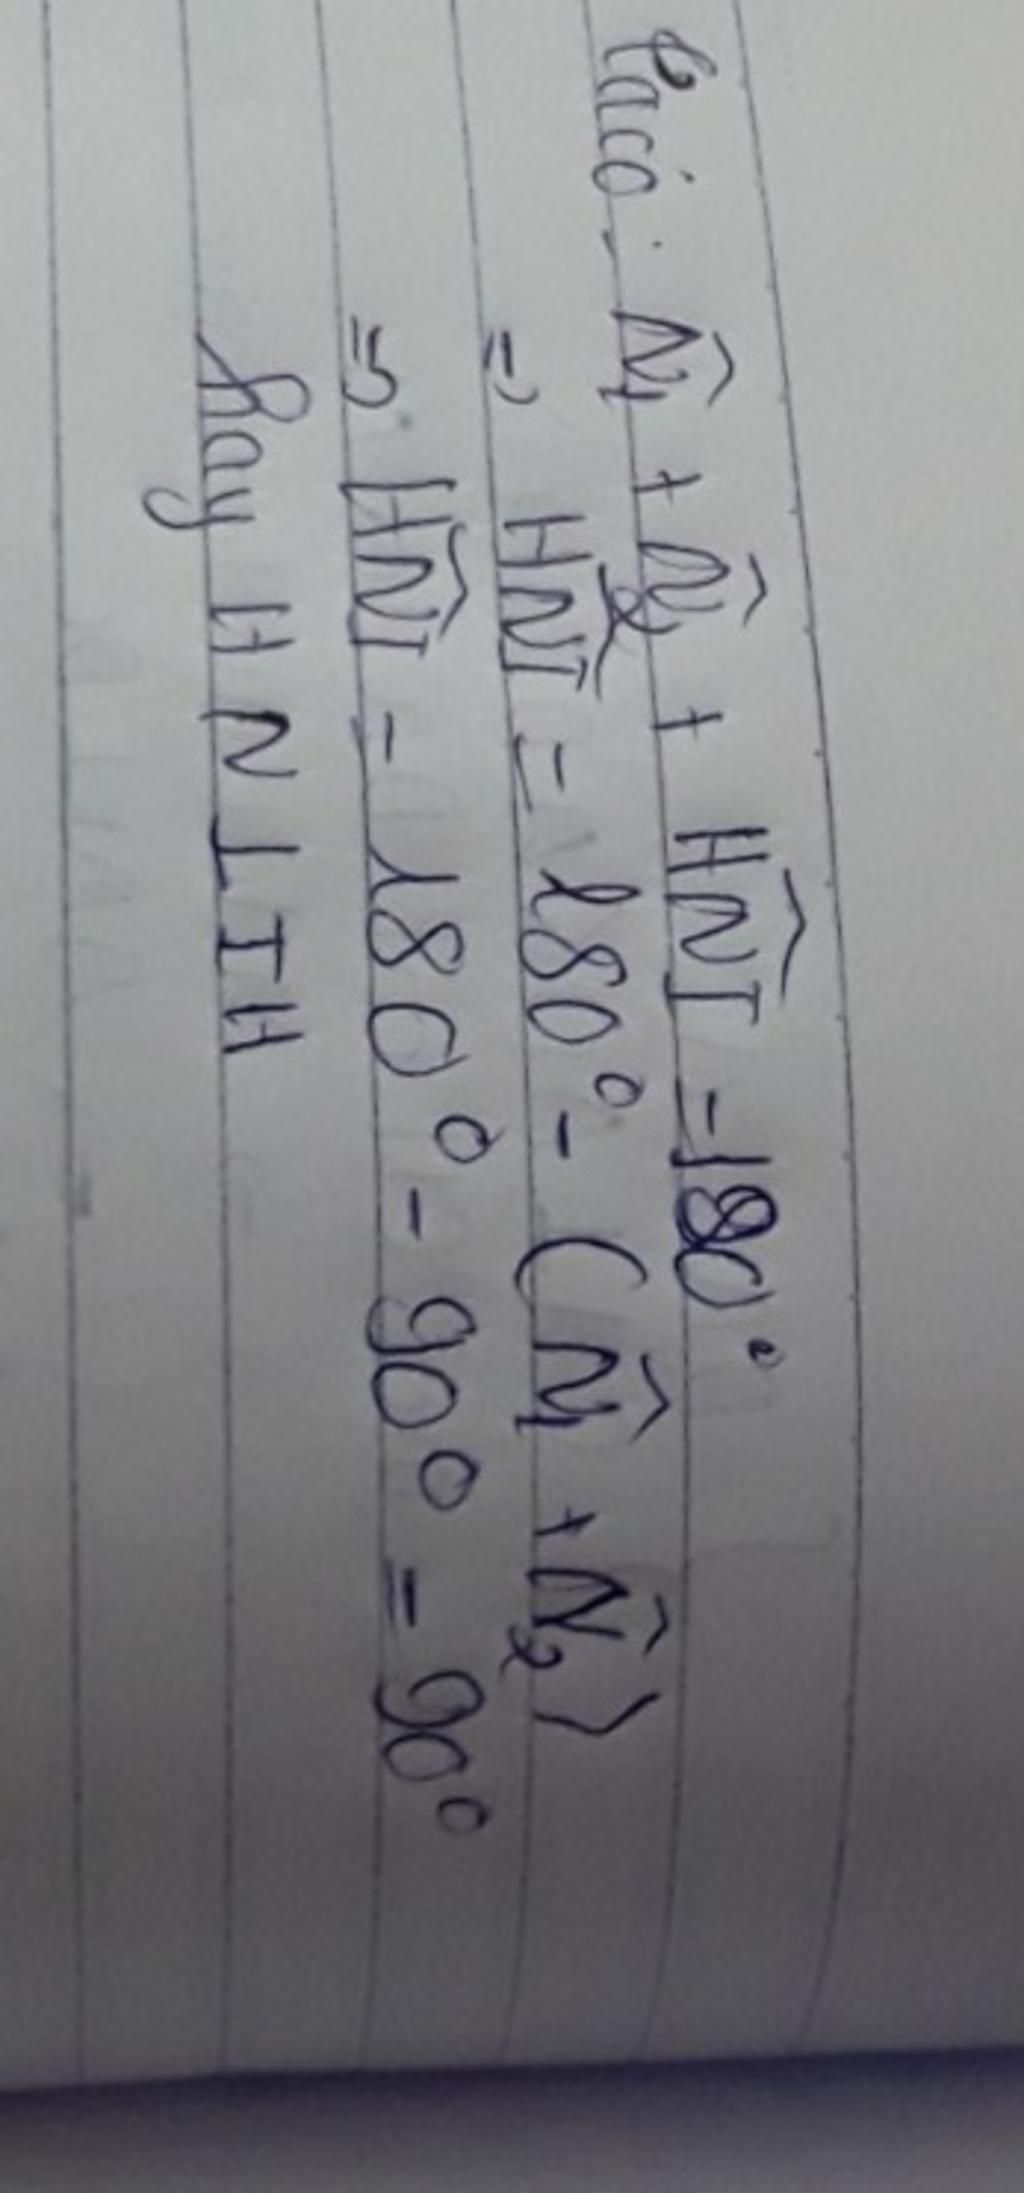 Ta có: N̂₁ + N̂₂ + HN̂I = 180°
=> HN̂I = 180° - (N̂₁ + N̂₂)
=> HN̂I = 180° - 90° = 90°
hay HN ⊥ IH